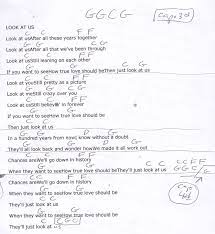 GGCG
capo 3rd
LOOK AT US
C C F F
Look at usAfter all these years together
G G C C
Look at usAfter all that we've been through
C C F F
Look at usStill leaning on each other
G G C
If you want to seeHow true love should beThen just look at us
C C F F
Look at youStill pretty as a picture
G G C C
Look at meStill crazy over you
C C F F
Look at usStill believin' in forever
G G
If you want to seeHow true love should be
C C
Then just look at us
G G D G
In a hundred years from now know without a doubt
G G D G
They'll all look back and wonder howWe made it all work out
C C F F
Chances areWe'll go down in history
G G C C
When they want to seeHow true love should beThey'll just look at us
C C F F
Chances areWe'll go down in history
G G
When they want to seeHow true love should be
C C
They'll just look at us
G G
When they want to seeHow true love should be
C
They'll just look at us